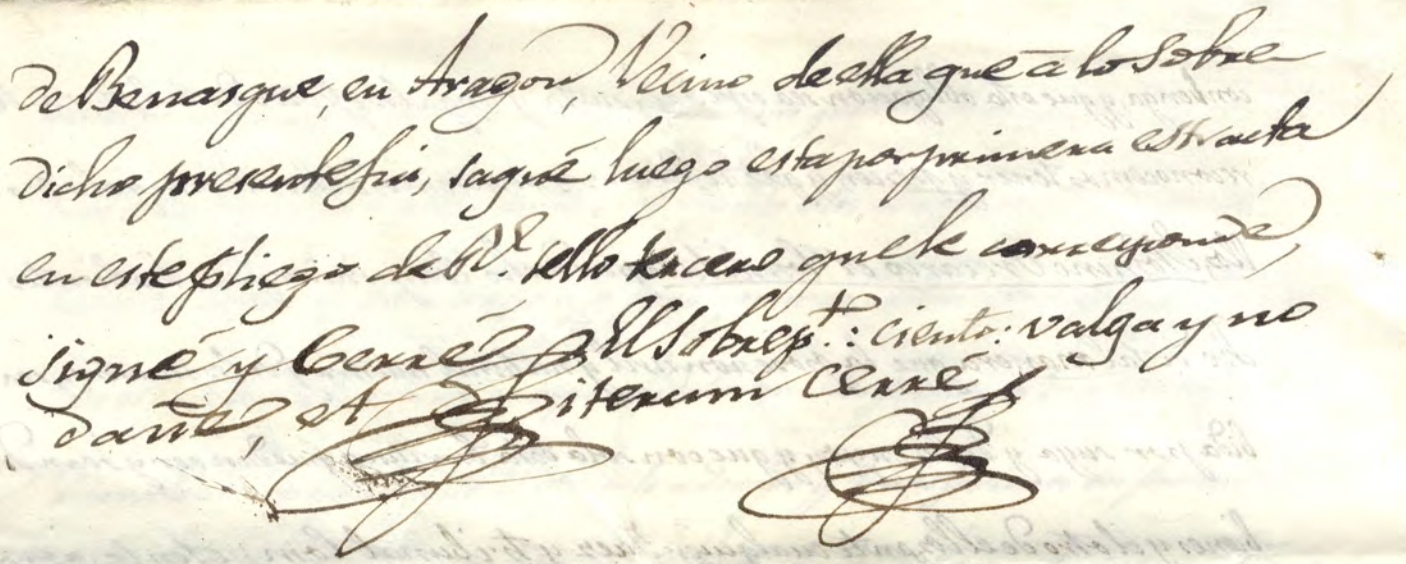 de Benasque, en Aragon, Vecino de ella que â lo sobre
dicho presente fui, saqué luego esta por primera estracta
en este pliego del Rl. sello tercero que le corresponde,
signé y Cerré El Sobrepto.: ciento: valga y no
dañe, et iterum cerré